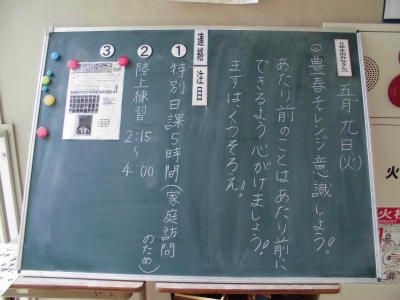 五月九日(火)
◎豊春チャレンジ意識しよう!
あたり前のことはあたり前に
できるよう心がけましょう!
まずは、くつそろえ。
連絡 注目
① 特別日課5時間(家庭訪問
のため)
② 陸上練習 2:15
~
4:00
③